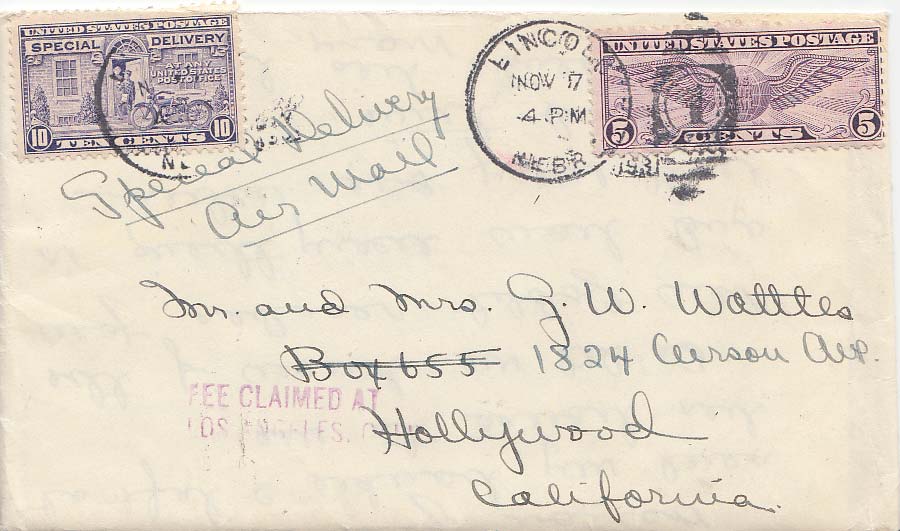 UNITED STATES POSTAGE
SPECIAL DELIVERY
AT ANY
UNITED STATES
POST OFFICE
10 TEN CENTS 10
LINCOL
NOV 17
4 PM
NEBR
1931
UNITED STATES POSTAGE
5 CENTS 5
1
Special Delivery
Air Mail
Mr. and Mrs. G. W. Wattles
Box 655 1824 Curson Ave.
FEE CLAIMED AT
LOS ANGELES,
Hollywood
California.